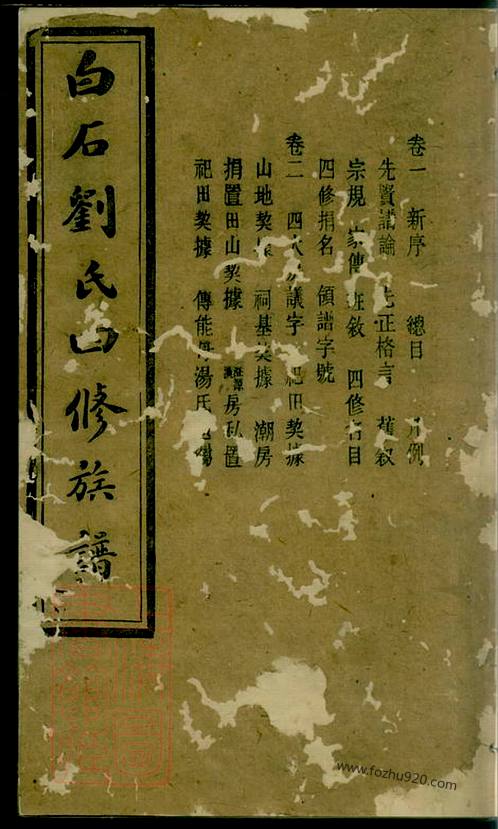 卷一　新序　總目　凡例
先賢譜論　先正格言　舊叙
宗規　家傳　班叙　四修名目
四修捐名　領譜字號
卷二　四次　議字　祀田契據
山地契據　祠基契據　潮房
捐置田山契據　房私置
祀田契據　傳能　湯氏
白石劉氏四修族譜
www.fozhu920.com